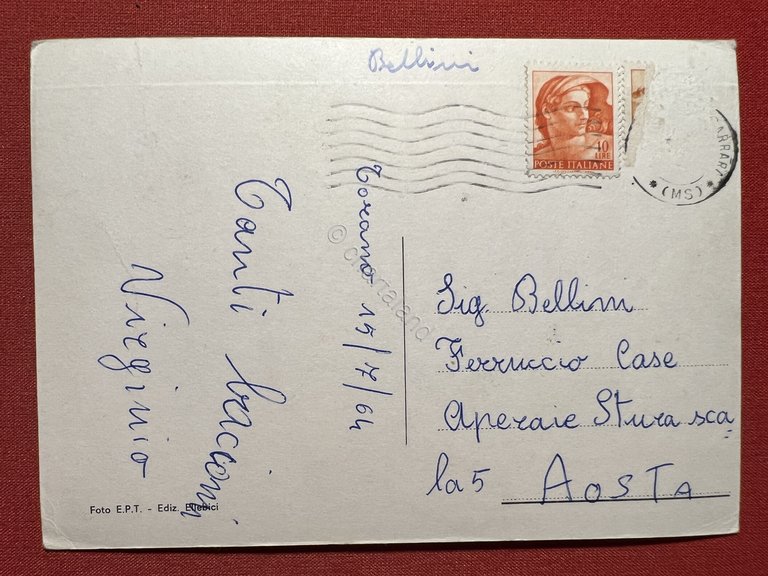 Bellini
40
LIRE
POSTE ITALIANE
(MS)
Torano 15/7/64
Tanti bacioni
Virginio
Sig. Bellini
Ferruccio Case
Aperaie Stura sca
la 5 AOSTA
Foto E.P.T. - Ediz. Ellebici
© cartaland